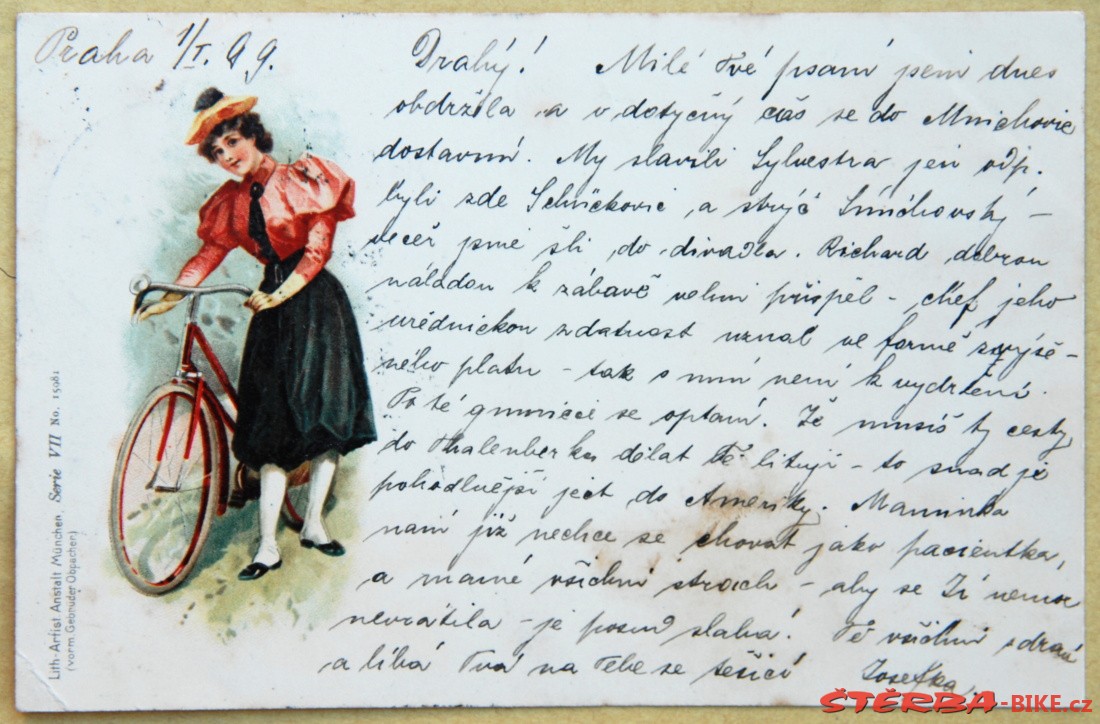 Praha 1/I. 99.
Drahý! Milé Tvé psaní jsem dnes
obdržela a v dotyčný čas se do Mnichovic
dostavím. My slavili Sylvestra jen odp.
byli zde a strýc Smíchovský –
večer jsme šli do divadla. Richard dobrou
náladou k zábavě velmi přispěl – chef jeho
úřednickou zdatnost uznal ve formě zvýše-
ného platu – tak s ním není k vydržení.
Po té se optám. Že musíš ty cesty
do Thalenberka dělat Tě lituji – to snad je
pohodlnější ject do Ameriky. Maminka
nám již nechce se chovat jako pacientka,
a máme všichni strach – aby se Jí nemoc
nevrátila – je posud slabá! Tě všichni zdraví
a líbá Tvá na Tebe se těšící Josefka.
Lith.-Artist. Anstalt München, Serie VII No. 15081
(vorm. Gebrüder Obpacher)
ŠTĚRBA-BIKE.cz